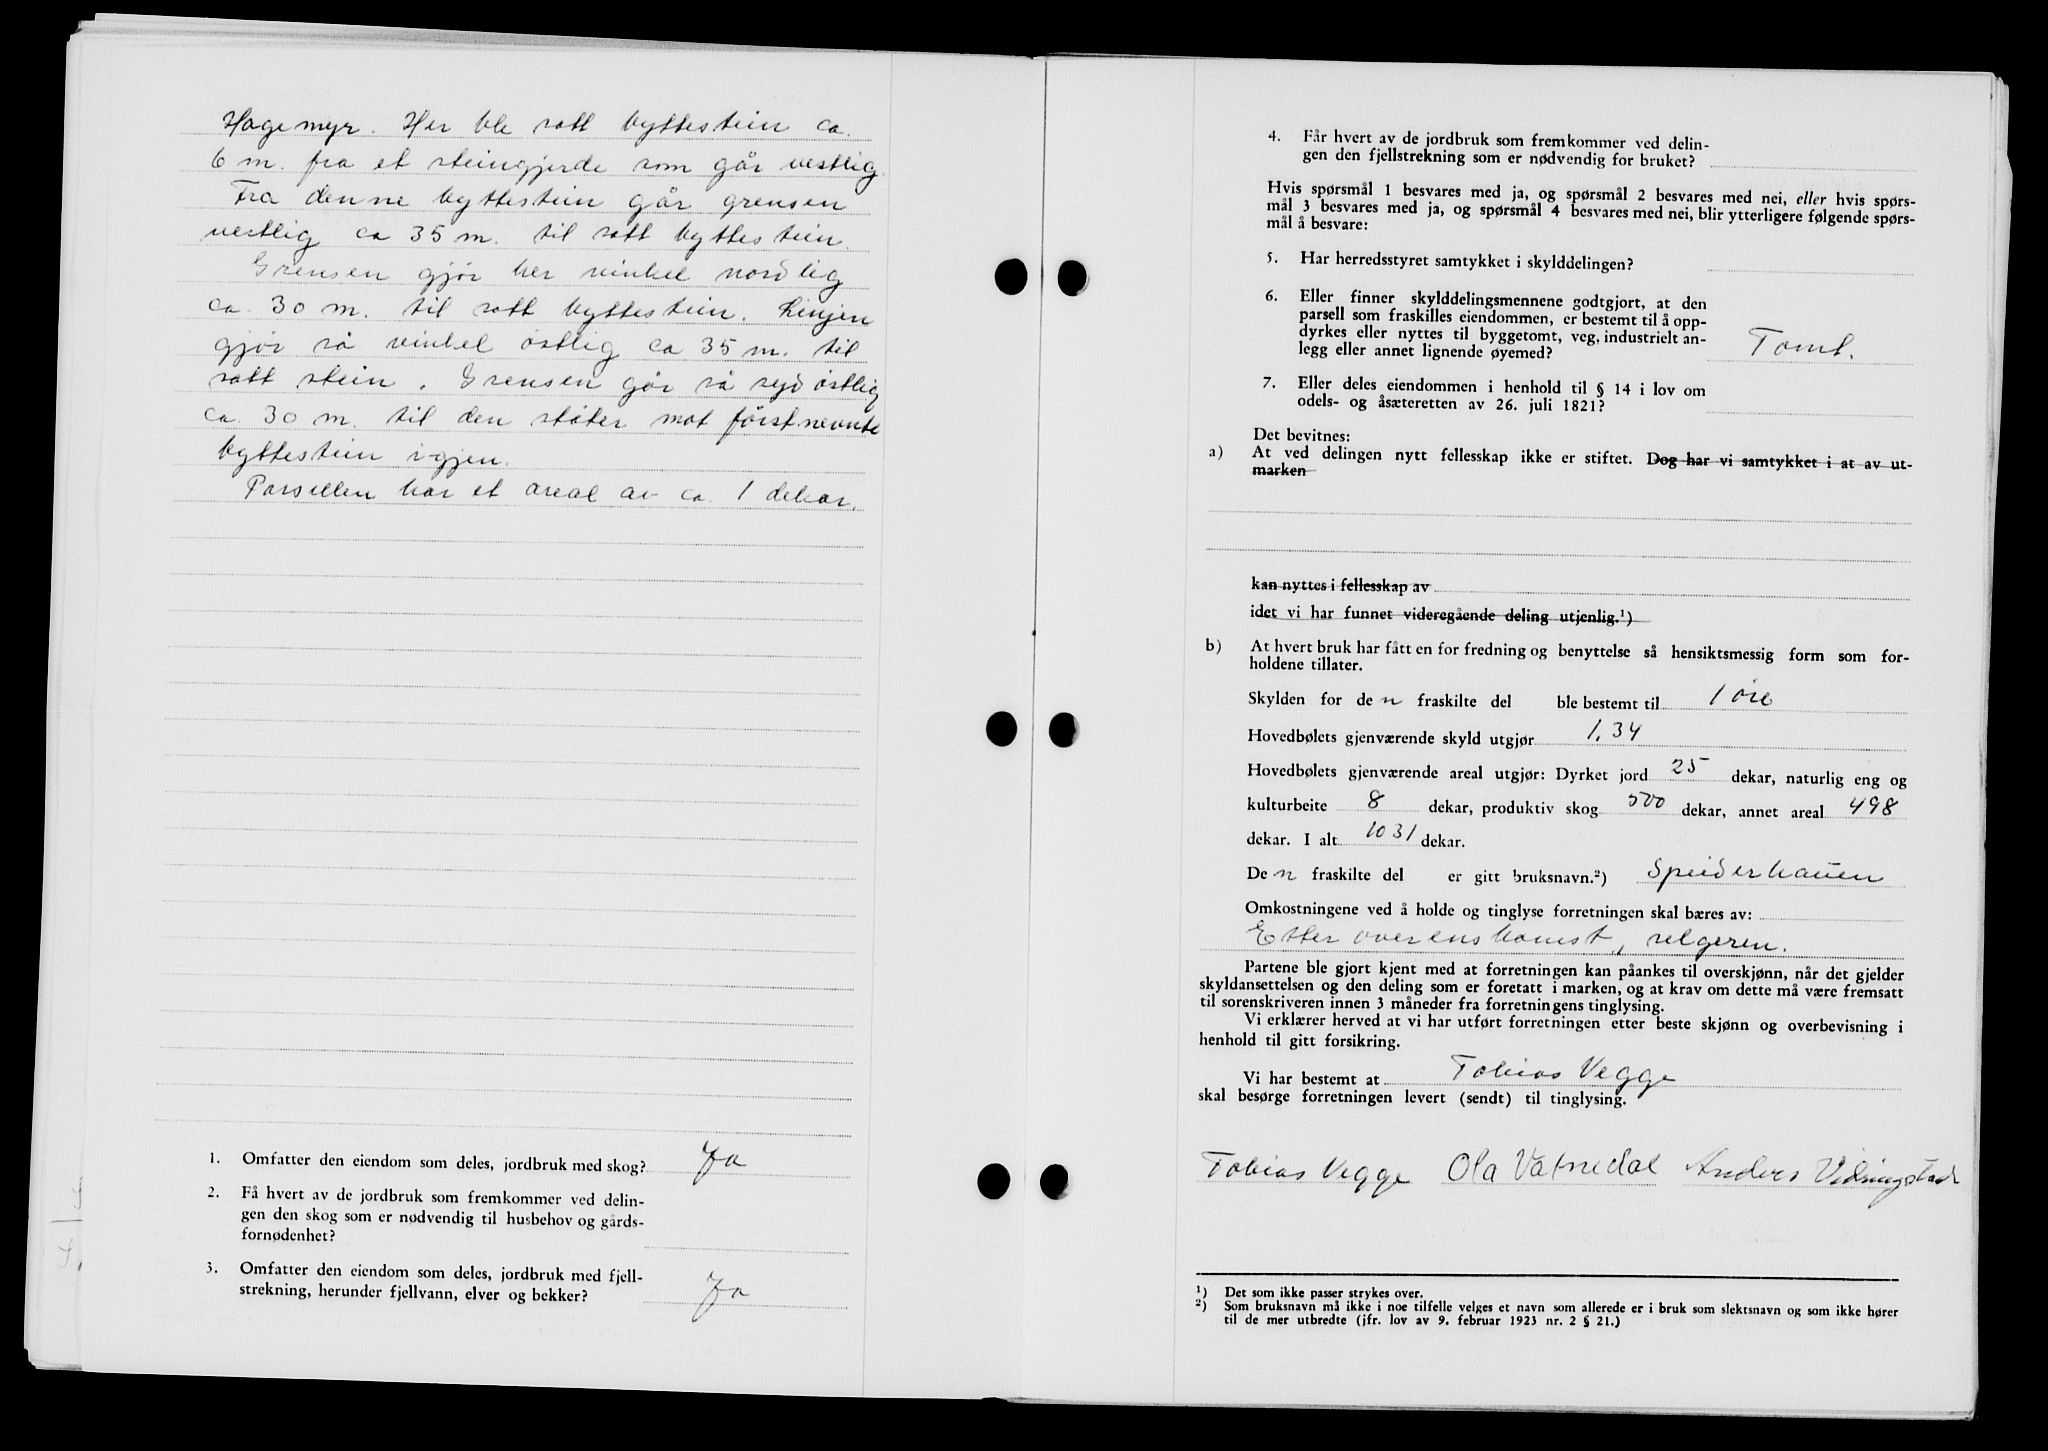 Hagemyr. Her ble satt byttestein ca.
6 m. fra et steingjerde som går vestlig.
Fra denne byttestein går grensen
vestlig ca 35 m. til satt byttestein.
Grensen gjør her vinkel nordlig
ca. 30 m. til satt byttestein. Linjen
gjør så vinkel østlig ca 35 m. til
satt stein. Grensen går så sydøstlig
ca. 30 m. til den støter mot førstnevnte
byttestein igjen.
Parsellen har et areal av ca. 1 dekar.
1. Omfatter den eiendom som deles, jordbruk med skog? Ja
2. Få hvert av de jordbruk som fremkommer ved delin-
gen den skog som er nødvendig til husbehov og gårds-
fornødenhet?
3. Omfatter den eiendom som deles, jordbruk med fjell-
strekning, herunder fjellvann, elver og bekker? Ja
4. Får hvert av de jordbruk som fremkommer ved delin-
gen den fjellstrekning som er nødvendig for bruket?
Hvis spørsmål 1 besvares med ja, og spørsmål 2 besvares med nei, eller hvis spørs-
mål 3 besvares med ja, og spørsmål 4 besvares med nei, blir ytterligere følgende spørs-
mål å besvare:
5. Har herredsstyret samtykket i skylddelingen?
6. Eller finner skylddelingsmennene godtgjort, at den
parsell som fraskilles eiendommen, er bestemt til å opp-
dyrkes eller nyttes til byggetomt, veg, industrielt an-
legg eller annet lignende øyemed? Tomt.
7. Eller deles eiendommen i henhold til § 14 i lov om
odels- og åsæteretten av 26. juli 1821?
Det bevitnes:
a) At ved delingen nytt fellesskap ikke er stiftet. Dog har vi samtykket i at av ut-
marken
kan nyttes i fellesskap av
idet vi har funnet videregående deling utjenlig.¹)
b) At hvert bruk har fått en for fredning og benyttelse så hensiktsmessig form som for-
holdene tillater.
Skylden for den fraskilte del ble bestemt til 1 øre
Hovedbølets gjenværende skyld utgjør 1.34
Hovedbølets gjenværende areal utgjør: Dyrket jord 25 dekar, naturlig eng og
kulturbeite 8 dekar, produktiv skog 500 dekar, annet areal 498
dekar. I alt 1031 dekar.
Den fraskilte del er gitt bruksnavn.²) Speiderhauen
Omkostningene ved å holde og tinglyse forretningen skal bæres av:
Etter overenskomst, selgeren.
Partene ble gjort kjent med at forretningen kan påankes til overskjønn, når det gjelder
skyldansettelsen og den deling som er foretatt i marken, og at krav om dette må være fremsatt
til sorenskriveren innen 3 måneder fra forretningens tinglysing.
Vi erklærer herved at vi har utført forretningen etter beste skjønn og overbevisning i
henhold til gitt forsikring.
Vi har bestemt at Tobias Vegge
skal besørge forretningen levert (sendt) til tinglysing.
Tobias Vegge Ola Vatnedal Anders Vidringstad
¹) Det som ikke passer strykes over.
²) Som bruksnavn må ikke i noe tilfelle velges et navn som allerede er i bruk som slektsnavn og som ikke hører
til de mer utbredte (jfr. lov av 9. februar 1923 nr. 2 § 21.)